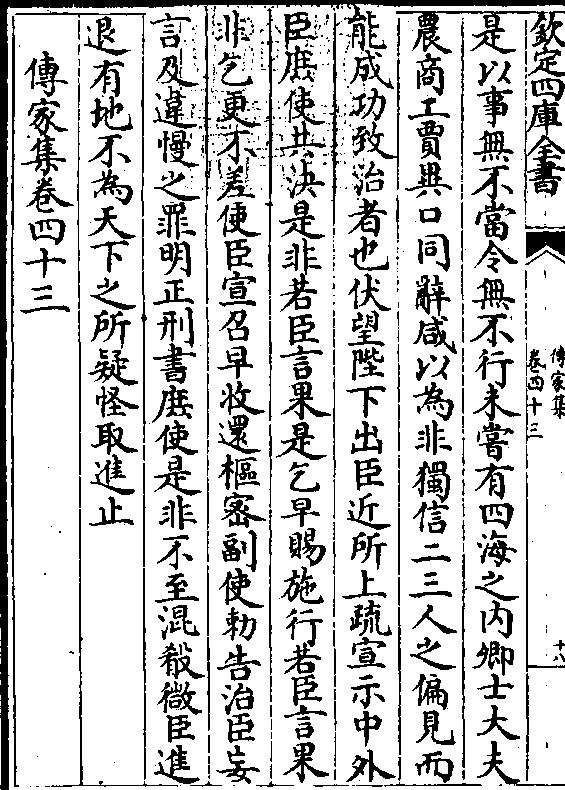 欽定四庫全書
傳家集
卷四十三
十八
是以事無不當令無不行未嘗有四海之内卿士大夫
農商工賈異口同辭咸以為非獨信二三人之偏見而
能成功致治者也伏望陛下出臣近所上疏宣示中外
臣庶使共決是非若臣言果是乞早賜施行若臣言果
非乞更不差使臣宣召早收還樞密副使勅告治臣妄
言及違慢之罪明正刑書庶使是非不至混殽微臣進
退有地不為天下之所疑怪取進止
傳家集卷四十三